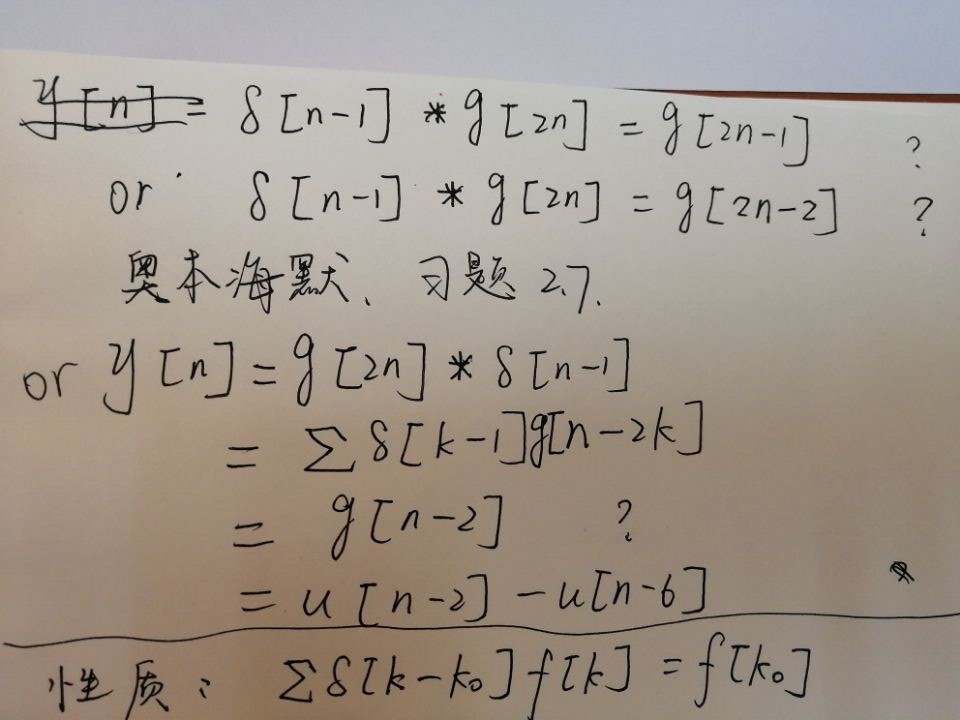 y[n] = δ[n-1] * g[2n] = g[2n-1] ?
or δ[n-1] * g[2n] = g[2n-2] ?
奥本海默、习题 2.7.
or y[n] = g[2n] * δ[n-1]
= Σ δ[k-1]g[n-2k]
= g[n-2] ?
= u[n-2] - u[n-6]
性质: Σδ[k-k₀]f[k] = f[k₀]